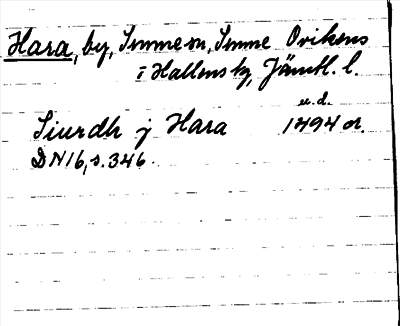 Hara, by, Imme sn, Imme Ovikens
i Hallens sg, Jämtl. l.
u.d.
Siurdh j Hara 1494 or.
DN16, s. 346.